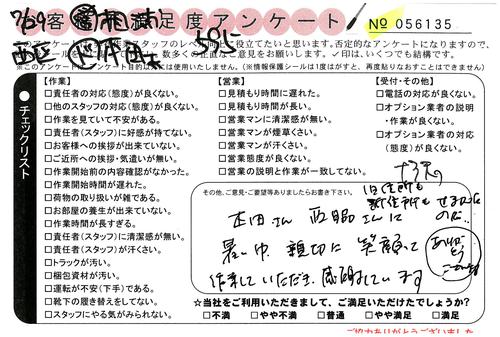 お客様満足度アンケート
№ 056135
このアンケートは
スタッフのレベル向上に役立てたいと思います。否定的なアンケートになりますので、
数多くの正直なご意見をお願いします。✓印は、いくつでも結構です。
※このアンケートはアンケート目的以外には使用いたしません。(※情報保護シールは1度はがすと、再度貼りなおすことはできません)
チェックリスト
【作業】
□責任者の対応(態度)が良くない。
□他のスタッフの対応(態度)が良くない。
□作業を見ていて不安がある。
□責任者(スタッフ)に好感が持てない。
□お客様への挨拶が出来ていない。
□ご近所への挨拶・気遣いが無い。
□作業開始前の内容確認がなかった。
□作業開始時間が遅れた。
□荷物の取り扱いが雑である。
□お部屋の養生が出来ていない。
□作業時間が長すぎる。
□責任者(スタッフ)に清潔感が無い。
□責任者(スタッフ)が汗くさい。
□トラックが汚い。
□梱包資材が汚い。
□運転が不安(下手)である。
□靴下の履き替えをしてない。
□スタッフにやる気がみられない。
【営業】
□見積もりに遅れた。
□見積もり時間が長い。
□営業マンに清潔感が無い。
□営業マンが煙草くさい。
□営業マンが汗くさい。
□営業態度が良くない。
□営業の説明と作業が一致してない。
【受付・その他】
□電話の対応が良くない。
□オプション業者の説明・作業が良くない。
□オプション業者の対応(態度)が良くない。
その他、ご意見・ご要望等ありましたらお書き下さい。
本田さん 西脇さんに
暑い中 親切に 笑顔で
作業していただき、感謝しています
☆当社をご利用いただきまして、ご満足いただけたでしょうか?
□不満 □やや不満 □普通 □やや満足 □満足
ご協力ありがとうございました